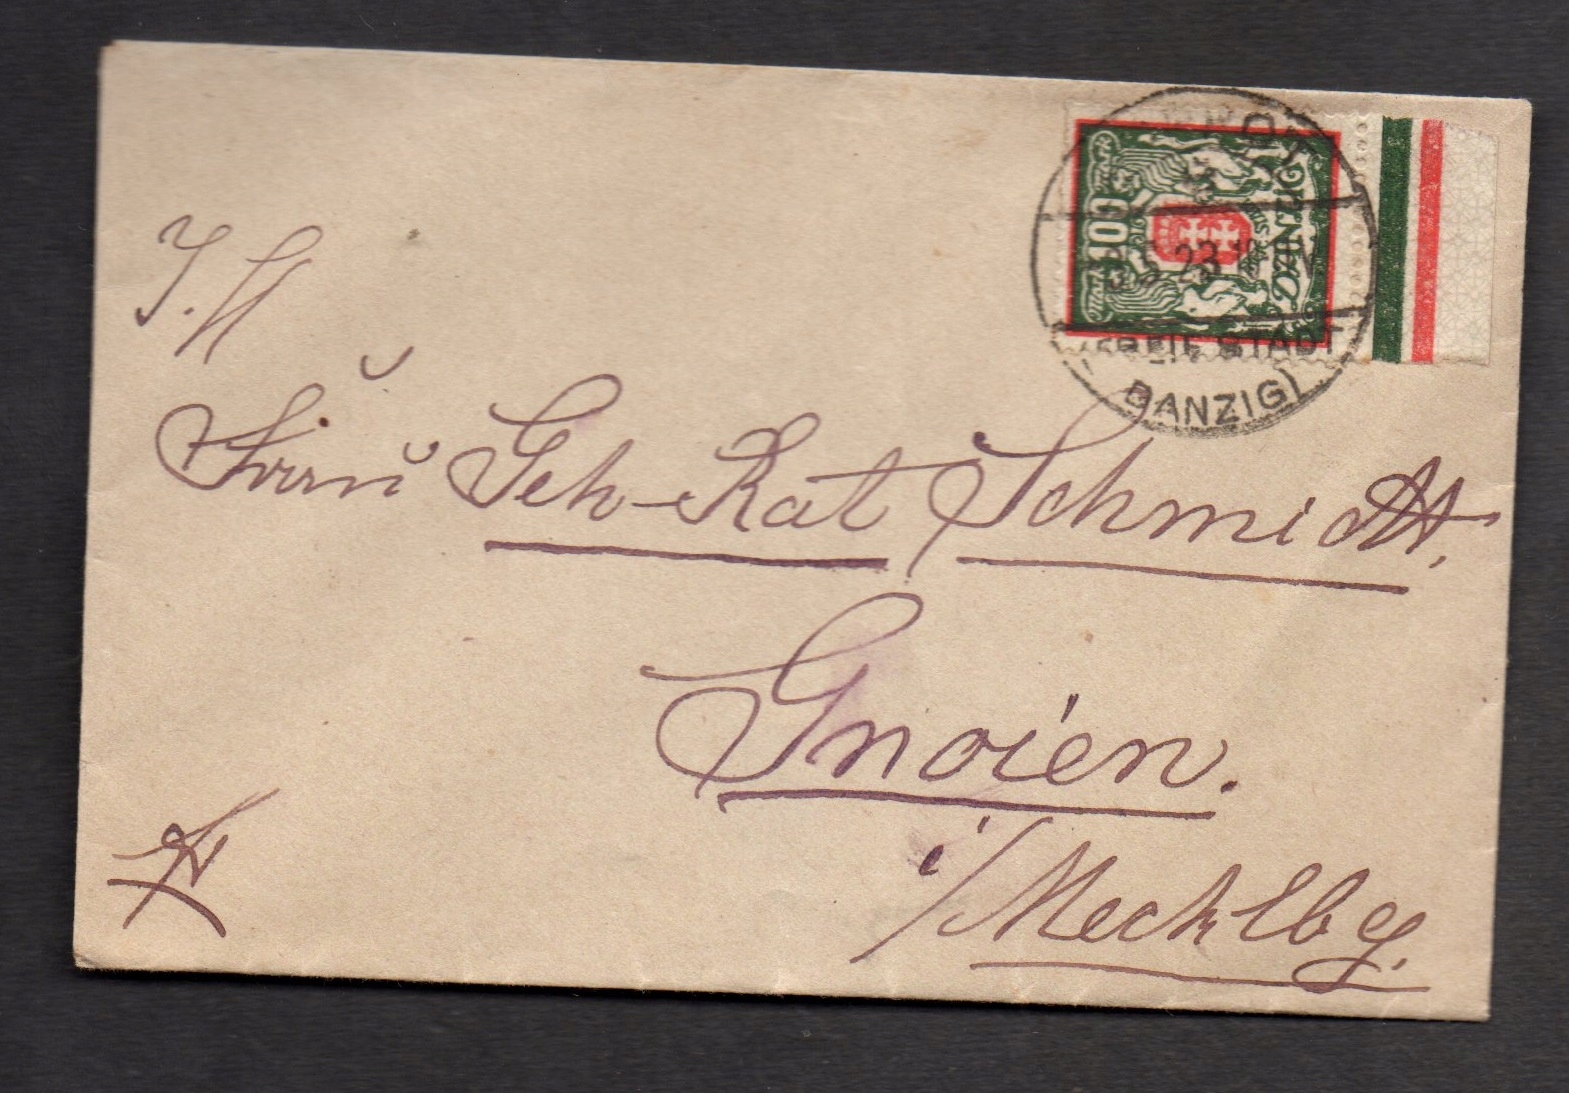 100
DANZIG
23
(FREIE STADT
DANZIG)
I. H
Frau Geh-Rat Schmidt,
Gnoien.
i/Mecklbg.